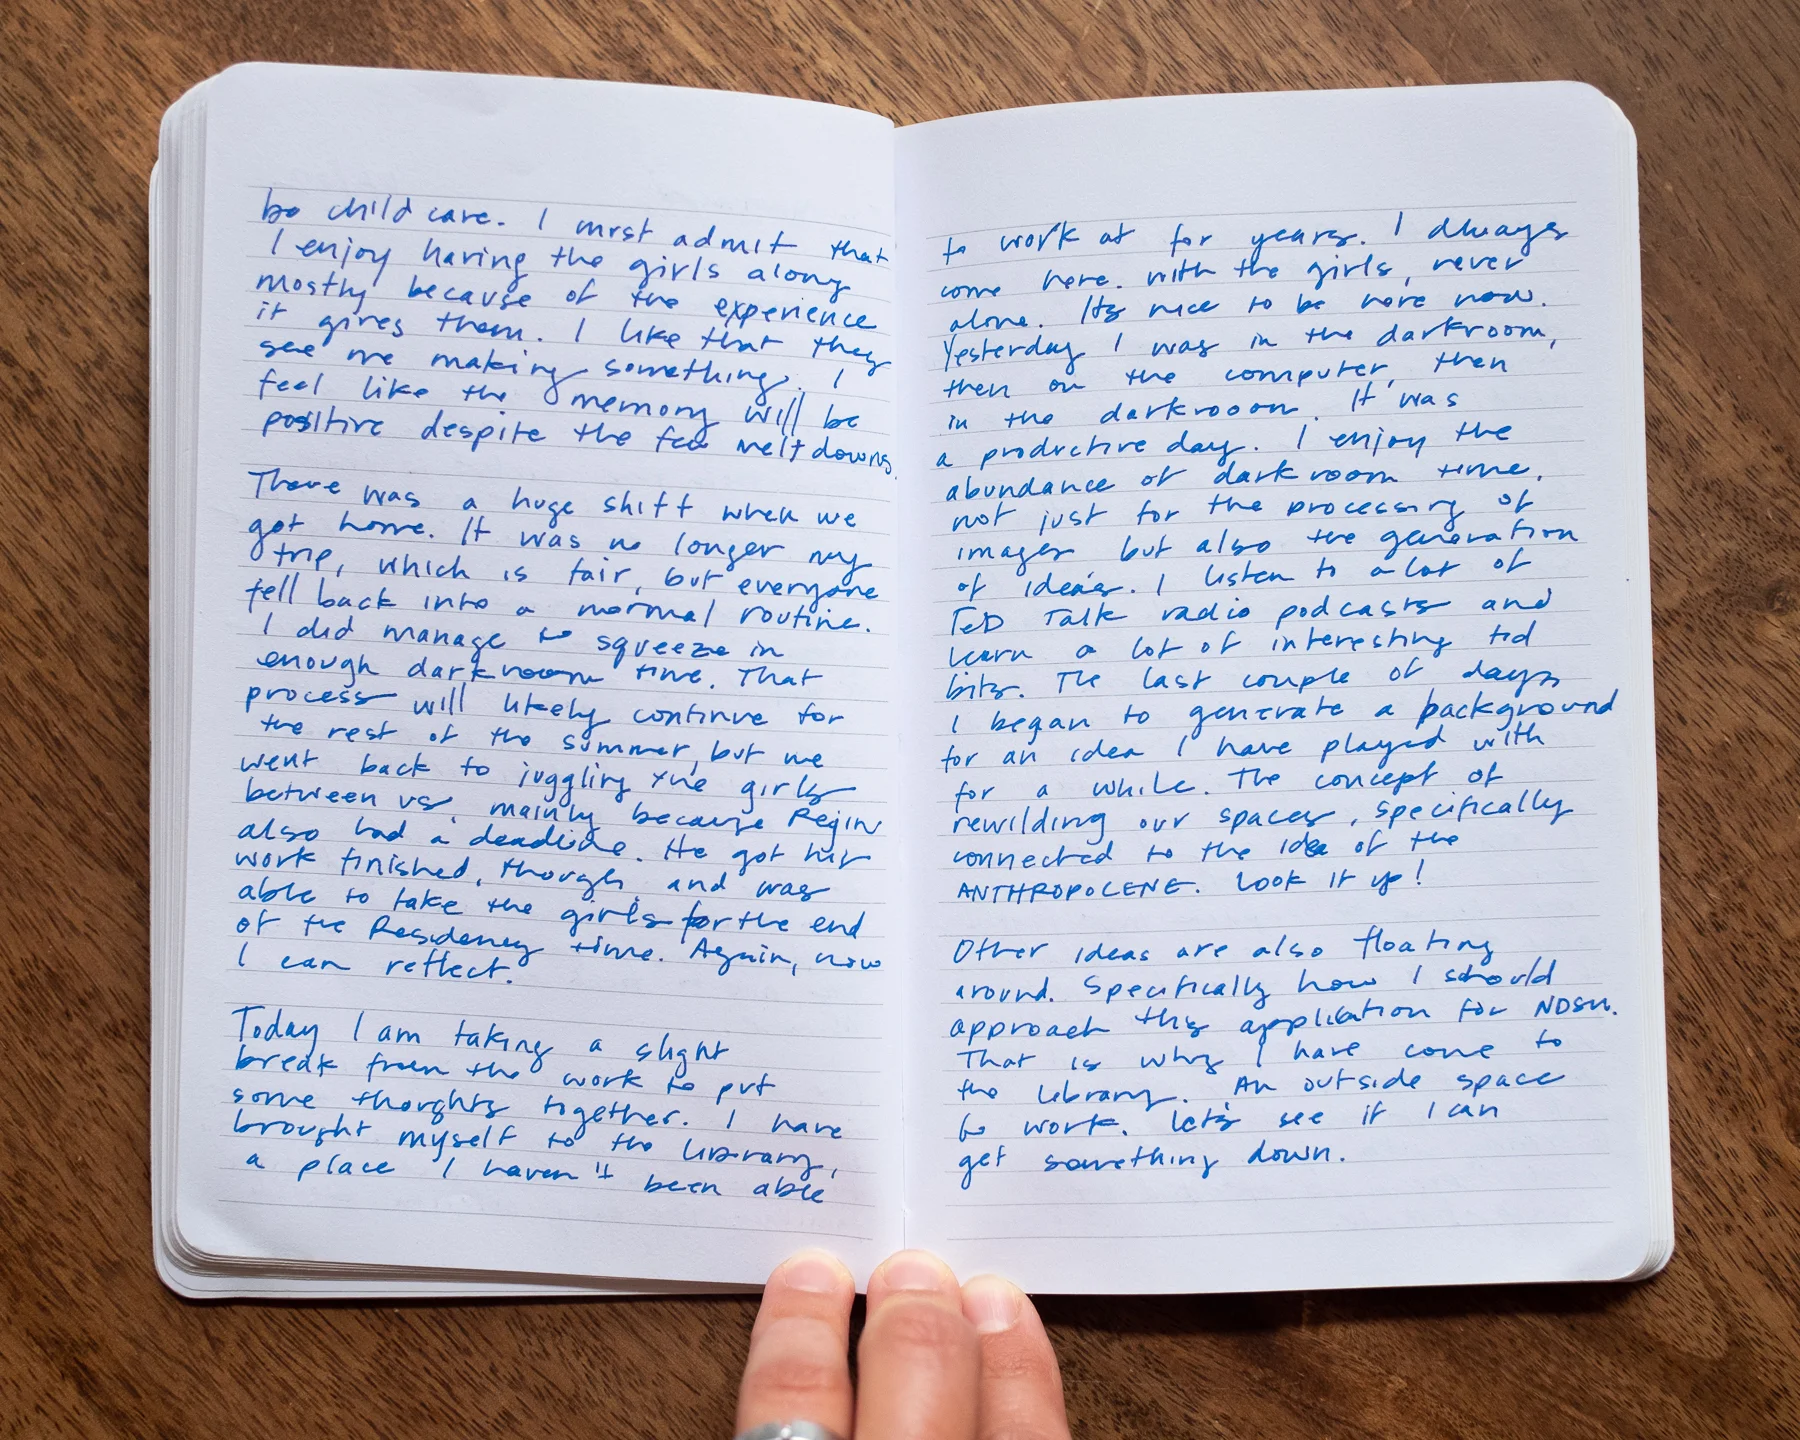 be child care. I must admit that
I enjoy having the girls along
mostly because of the experience
it gives them. I like that they
see me making something. I
feel like the memory will be
positive despite the few meltdowns.
There was a huge shift when we
got home. It was no longer my
trip, which is fair, but everyone
fell back into a normal routine.
I did manage to squeeze in
enough darkroom time. That
process will likely continue for
the rest of the summer, but we
went back to juggling the girls
between us, mainly because Regin
also had a deadline. He got his
work finished, though and was
able to take the girls for the end
of the Residency time. Again, now
I can reflect.
Today I am taking a slight
break from the work to put
some thoughts together. I have
brought myself to the library,
a place I haven't been able
to work at for years. I always
come here with the girls, never
alone. Its nice to be here now.
Yesterday I was in the darkroom,
then on the computer, then
in the darkrooom. It was
a productive day. I enjoy the
abundance of darkroom time,
not just for the processing of
images but also the generation
of ideas. I listen to a lot of
TED Talk radio podcasts and
learn a lot of interesting tid
bits. The last couple of days
I began to generate a background
for an idea I have played with
for a while. The concept of
rewilding our spaces, specifically
connected to the idea of the
ANTHROPOCENE. Look it up!
Other ideas are also floating
around. Specifically how I should
approach this application for NDSU.
That is why I have come to
the library. An outside space
to work. Let's see if I can
get something down.